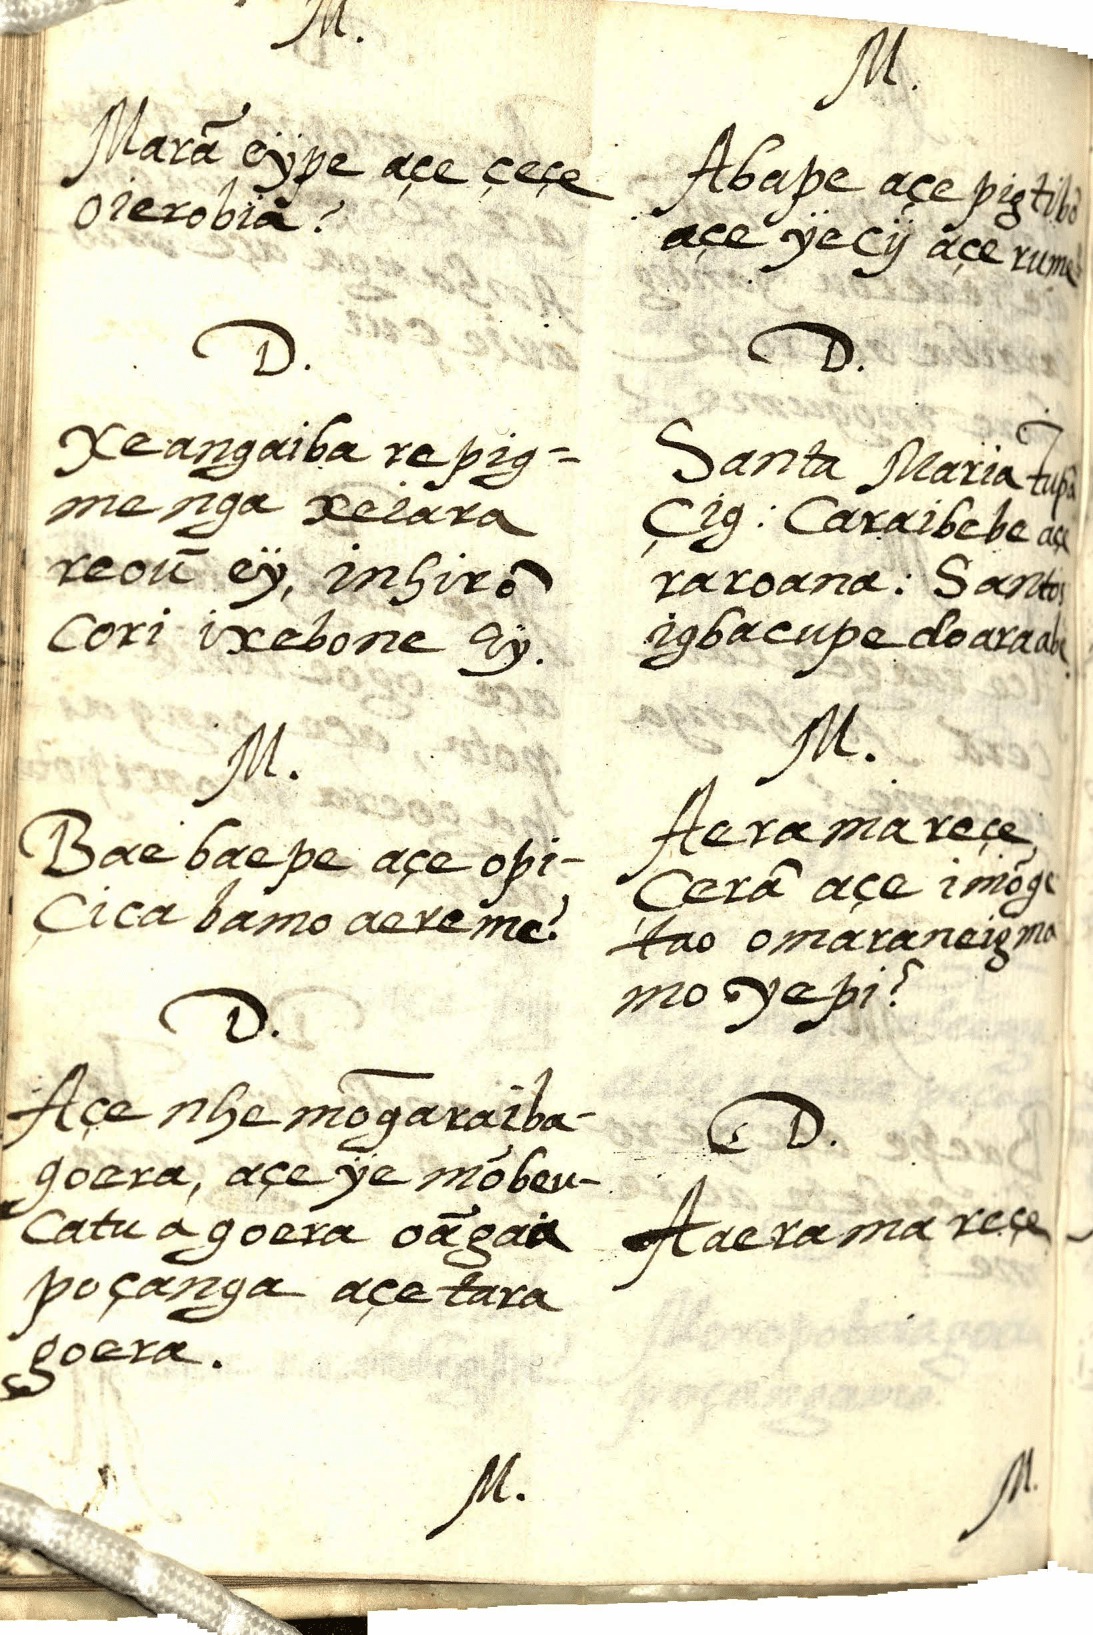 M.
Marã eÿpe açe çeçe
oierobiâ?
D.
Xe angaiba re pig=
menga xeiara
reoũ eÿ, inhirõ
Cori ixebone eÿ.
M.
Bae baepe açe opi-
Çica bamo aereme?
D.
Açe nhe mõgaraiba-
goera, açe ÿe mõbeu-
Catu a goera oãgaia
poçanga açe tara
goera.
M.
M.
Abape açe pigtibõ
açe ÿecÿ açe rume
D.
Santa Maria Tupã
Çig: Caraibebe açe
raroana: Santos
igbacupe doara abe.
M.
Aeramareçe
Çerã açe imõge
tao omaraneigma
mo yepi?
D.
Aaeramareçe
M.